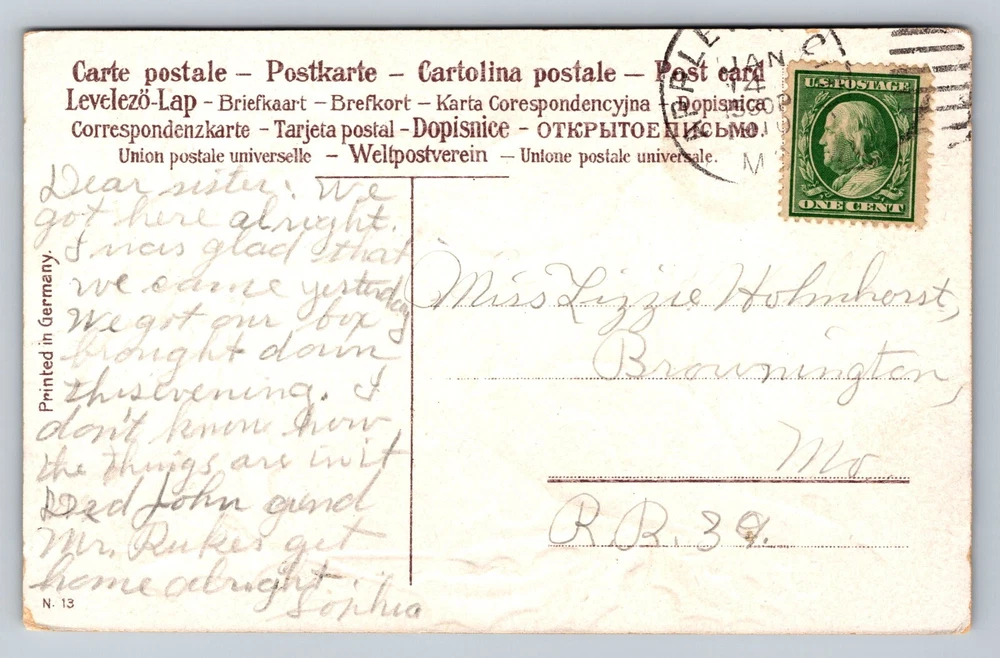 Carte postale – Postkarte – Cartolina postale – Post card
Levelező-Lap – Briefkaart – Brefkort – Karta Corespondencyjna – Dopisnica
Correspondenzkarte – Tarjeta postal – Dopisnice – ОТКРЫТОЕ ПИСЬМО.
Union postale universelle – Weltpostverein – Unione postale universale.
JAN
14
M
U.S. POSTAGE
ONE CENT
Printed in Germany.
Dear sister: We
got here alright.
I was glad that
we came yesterday
We got our box
brought down
this evening. I
don't know how
the things are in it
Did John and
Mr. Rukes get
home alright.
Sophia
N. 13
Miss Lizzie Hohnhorst,
Brownington,
Mo.
R.R. 39.